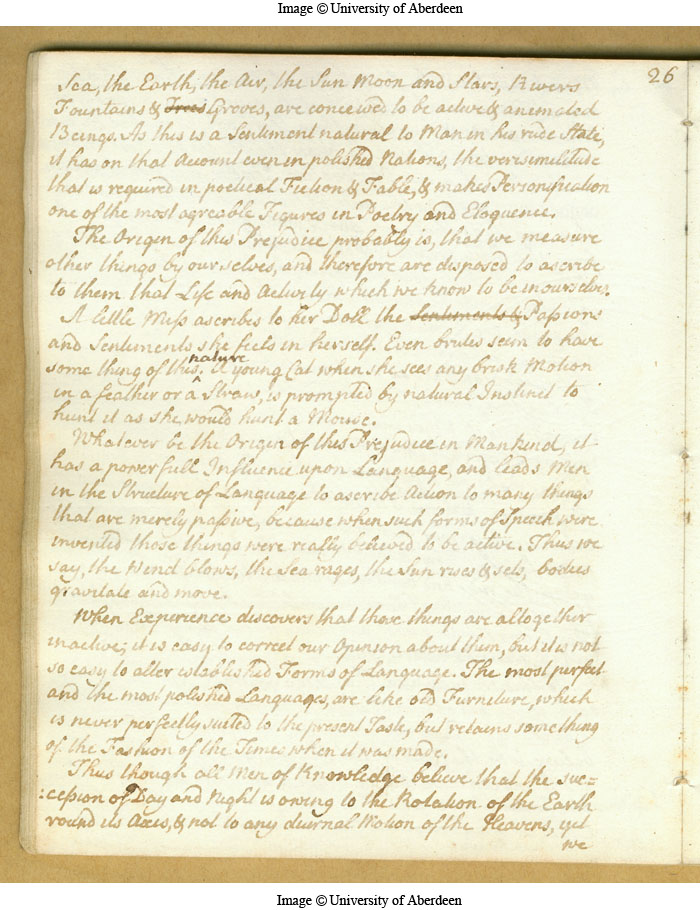 Image © University of Aberdeen
26
Sea, the Earth, the Air, the Sun Moon and Stars, Rivers
Fountains & Trees Groves, are conceived to be active & animated
Beings. As this is a Sentiment natural to Man in his rude State,
it has on that Account even in polished Nations, the verisimilitude
that is required in poetical Fiction & Fable, & makes Personification
one of the most agreable Figures in Poetry and Eloquence.
The Origin of this Prejudice probably is, that we measure
other things by our selves, and therefore are disposed to ascribe
to them that Life and Activity which we know to be in ourselves.
A little Miss ascribes to her Doll the Sentiments & Passions
and Sentiments she feels in herself. Even brutes seem to have
some thing of this nature. A young Cat when she sees any brisk Motion
in a feather or a Straw, is prompted by natural Instinct to
hunt it as she would hunt a Mouse.
Whatever be the Origin of this Prejudice in Mankind, it
has a powerfull Influence upon Language, and leads Men
in the Structure of Language to ascribe Action to many things
that are merely passive, because when such forms of Speech were
invented those things were really believed to be active. Thus we
say, the Wind blows, the Sea rages, the Sun rises & sets, bodies
gravitate and move.
When Experience discovers that those things are altogether
inactive; it is easy to correct our Opinion about them, but it is not
so easy to alter established Forms of Language. The most perfect
and the most polished Languages, are like old Furniture, which
is never perfectly suited to the present Taste, but retains something
of the Fashion of the Times when it was made.
Thus though all Men of Knowledge believe that the suc=
:cession of Day and Night is owing to the Rotation of the Earth
round its Axis, & not to any diurnal Motion of the Heavens, yet
we
Image © University of Aberdeen